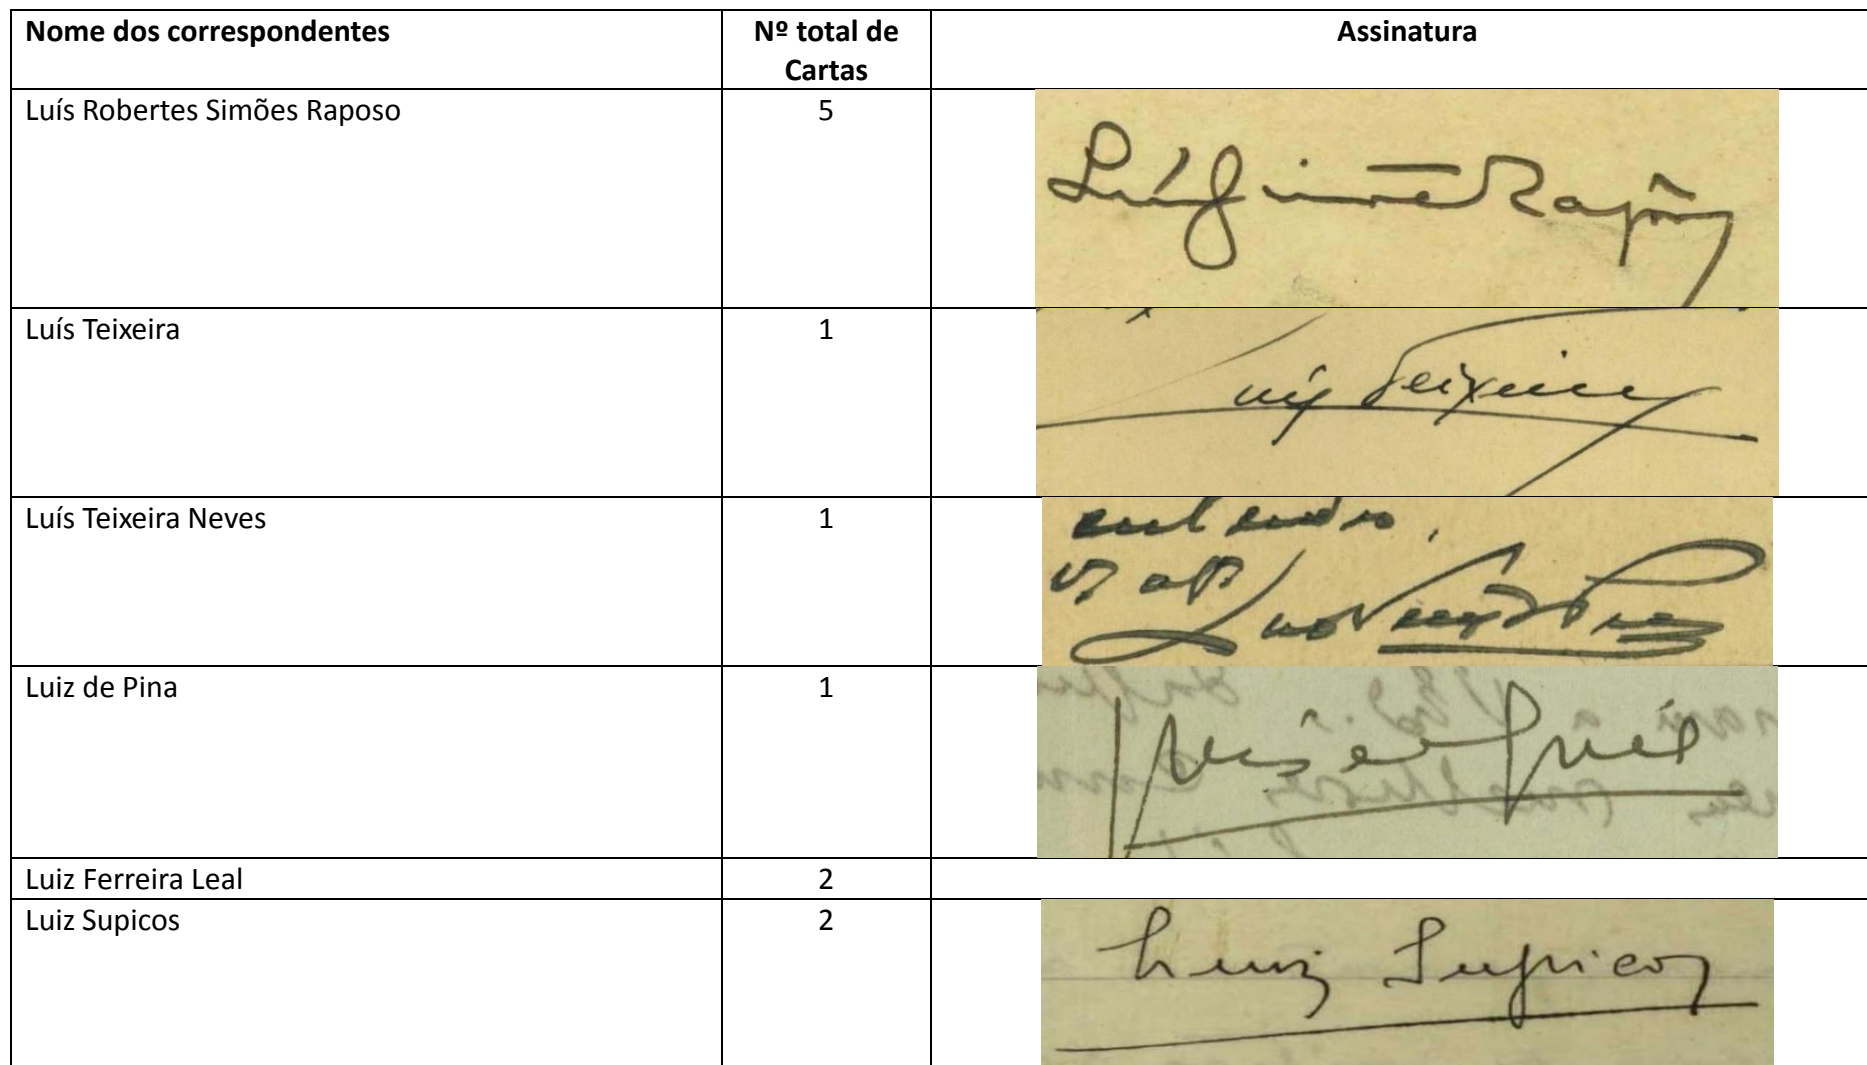 Nome dos correspondentes
Nº total de
Cartas
Assinatura
Luís Robertes Simões Raposo
5
Luís Simões Raposo
Luís Teixeira
1
Luís Teixeira
Luís Teixeira Neves
1
Luiz de Pina
1
Luís de Pina
Luiz Ferreira Leal
2
Luiz Supicos
2
Luiz Supicos